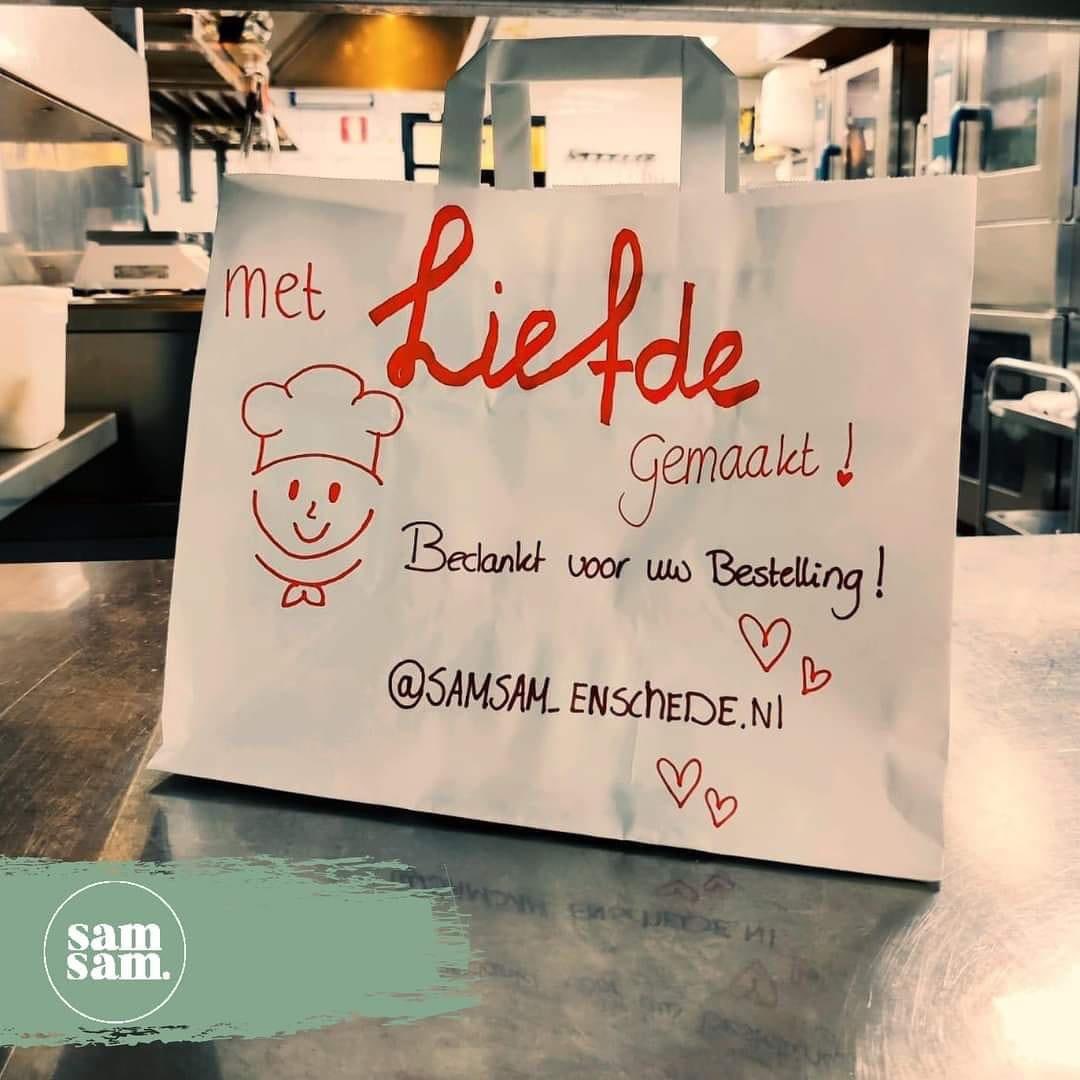 met Liefde
Gemaakt!
Bedankt voor uw Bestelling!
@SAMSAM_ENSCHEDE.Nl
sam
sam.